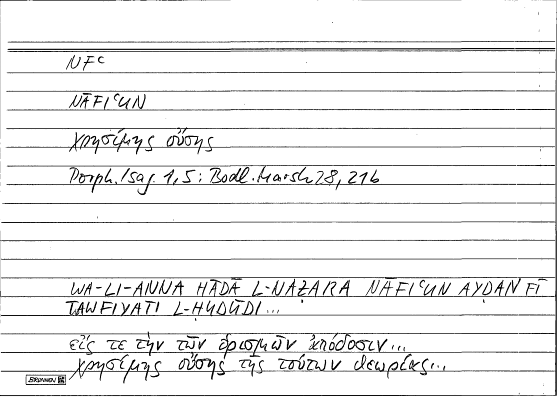 NFᶜ
NĀFIᶜUN
χρησίμης οὔσης
Porph. Isag. 1,5 : Bodl. Marsh 28, 21b
WA-LI-ANNA HĀḎĀ L-NAẒARA NĀFIᶜUN AYḌAN FĪ
TAWFIYATI L-ḤUDŪDI...
εἴς τε τὴν τῶν ὁρισμῶν ἀπόδοσιν...
χρησίμης οὔσης τῆς τούτων θεωρίας...
BRUNNEN